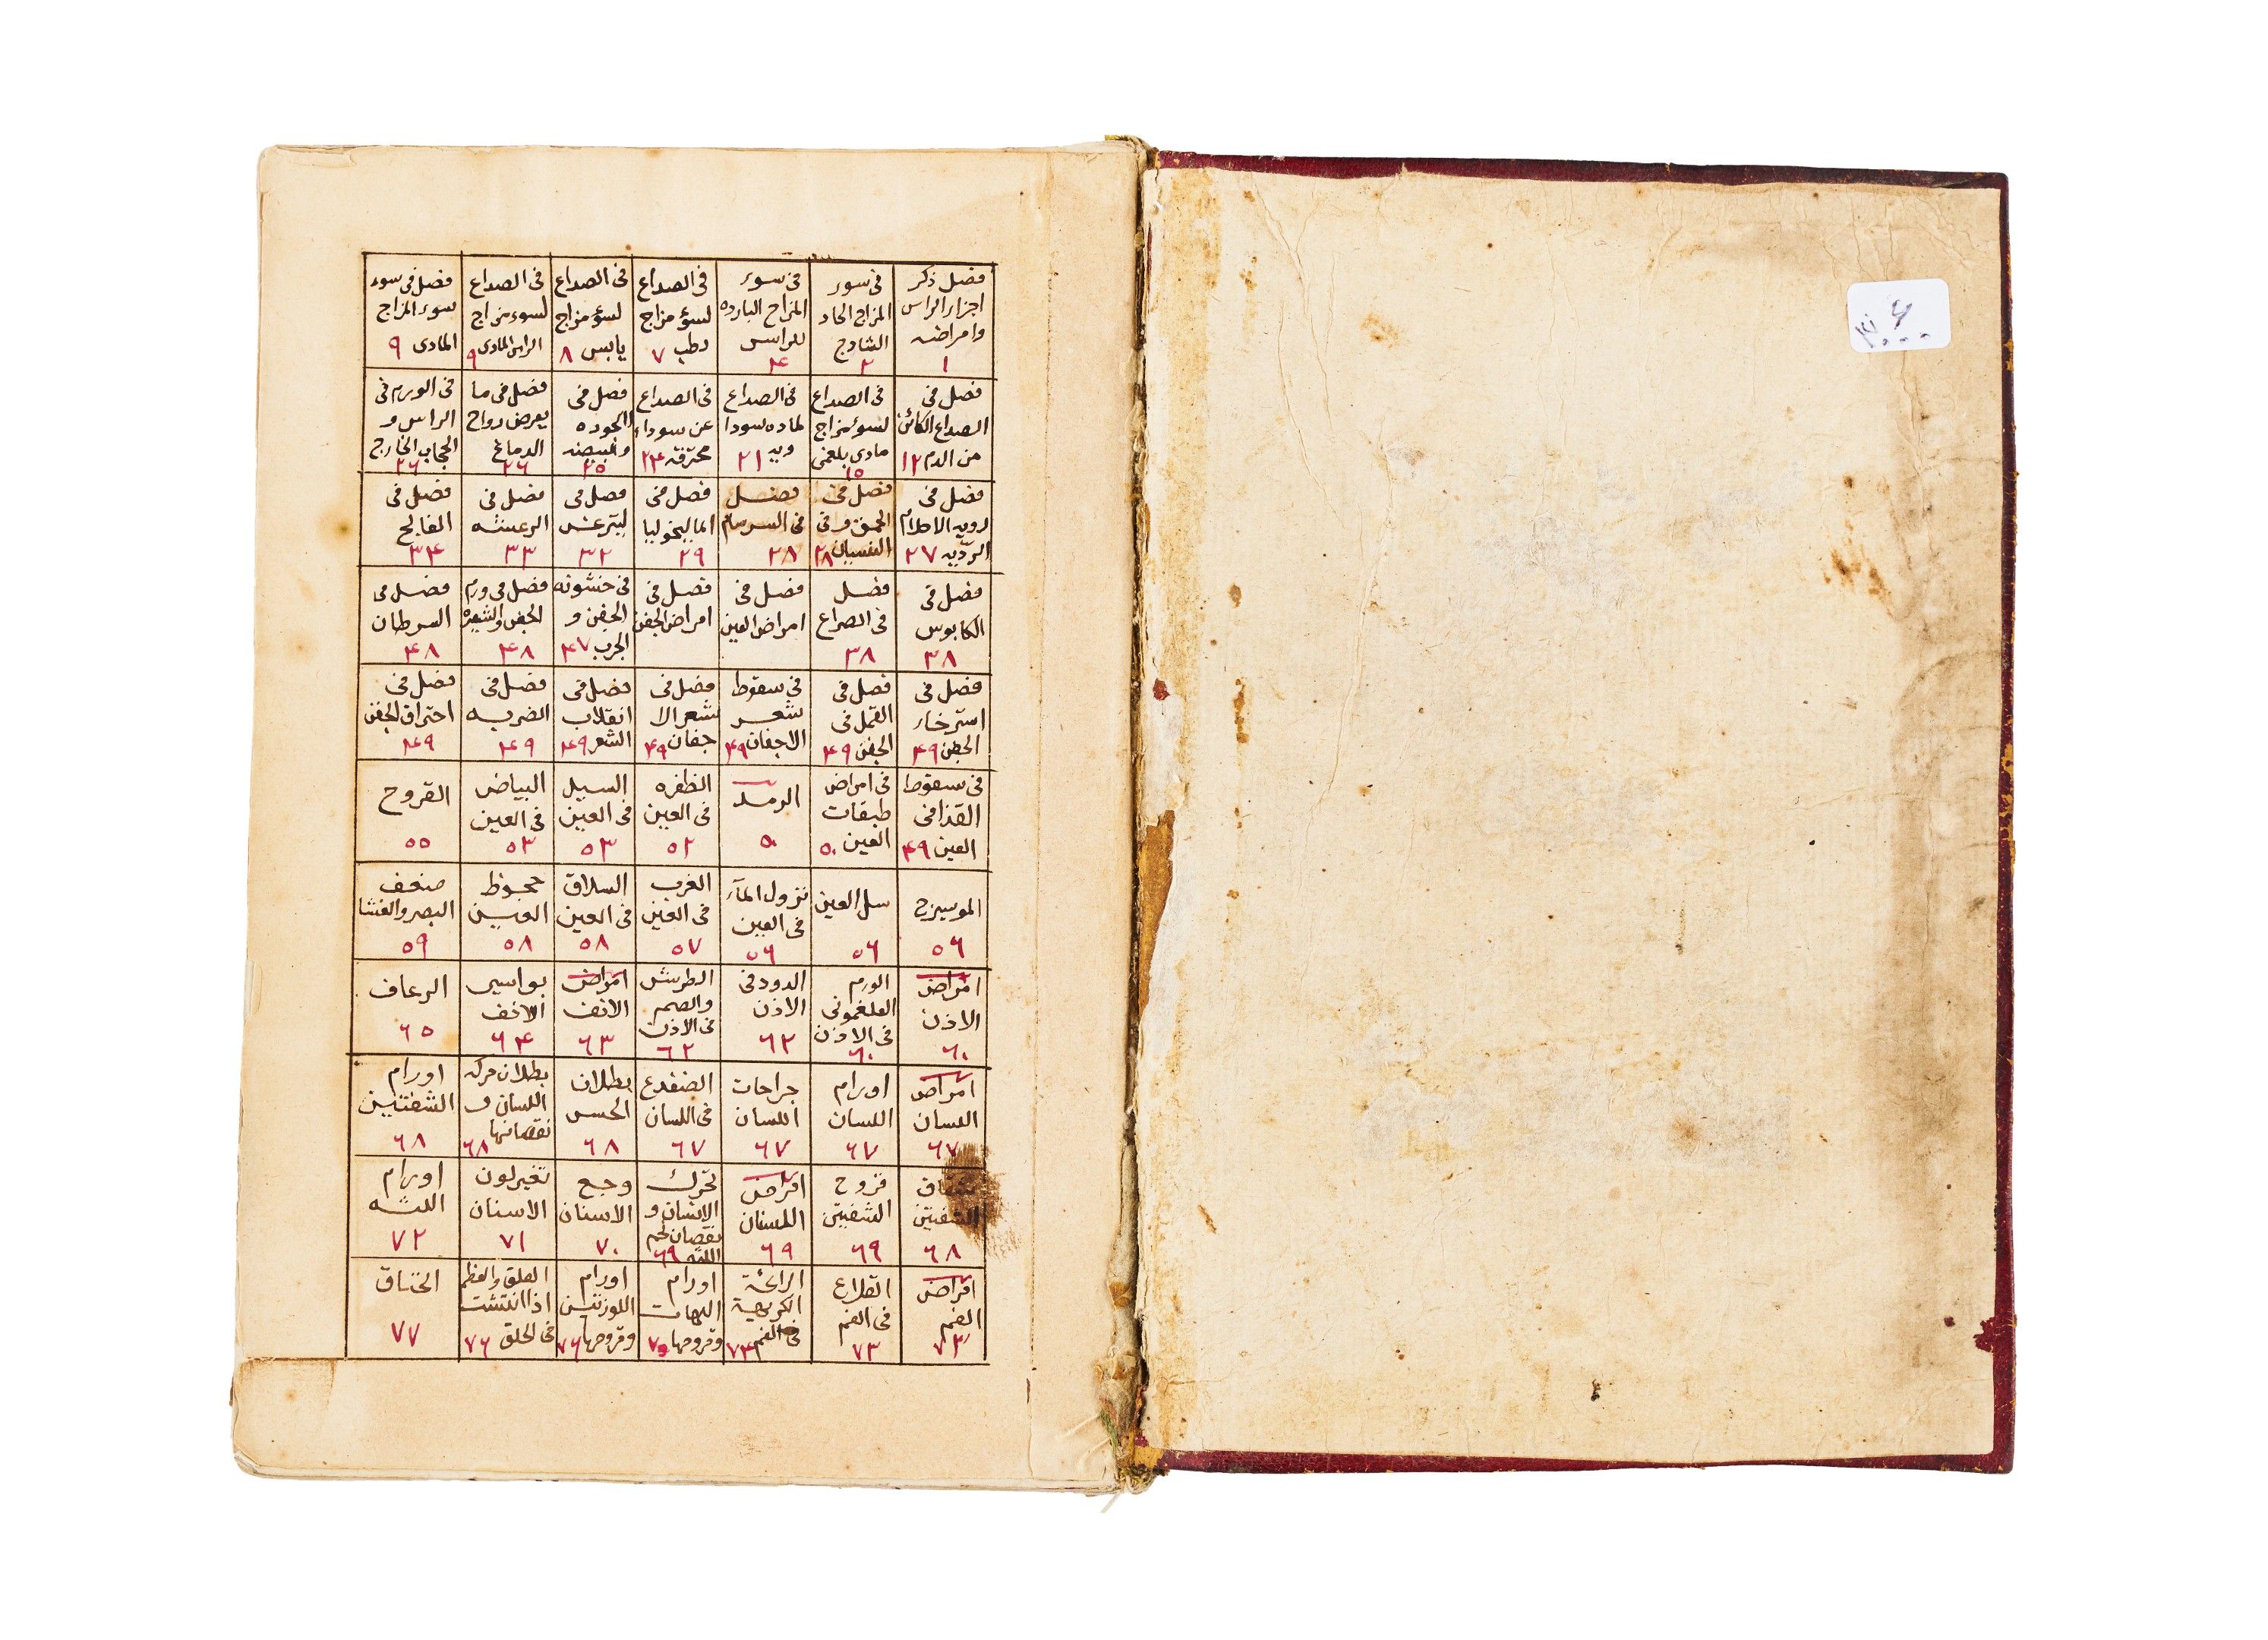 فصل ذكر
اجزاء الراس
وامراضه
١
فى سوء
المزاج الحاد
الساذج
٢
فى سوء
المزاج البارده
للراس
۴
فى الصداع
لسؤ مزاج
رطب ٧
فى الصداع
لسؤ مزاج
يابس ٨
فى الصداع
لسوء مزاج
الراس المادى ٩
فصل فى سوء
سوء المزاج
المادى ٩
فصل فى
الصداع الكائن
من الدم ١٢
فى الصداع
لسوء مزاج
مادى بلغمى
١٥
فى الصداع
لماده سودا
ويه ٢١
فى الصداع
عن سوداء
محترقه ٢۴
فصل فى
الخوده
والبيضه
٢٥
فصل فى ما
يعرض رواح
الدماغ
٢٦
فى الورم فى
الراس و
الحجاب الخارج
٢٦
فصل فى
رويه الاحلام
الرديه ٢٧
فصل فى
الحمق وفى
النسيان ٢٨
فصل
فى السرسام
٢٨
فصل فى
الماليخوليا
٢٩
فصل فى
ليترغس
٣٢
فصل فى
الرعشه
٣٣
فصل فى
الفالج
٣۴
فصل فى
الكابوس
٣٨
فصل
فى الصراع
٣٨
فصل فى
امراض العين
فصل فى
امراض الجفن
فى خشونه
الجفن و
الجرب ۴٧
فصل فى ورم
الجفن والشعيره
۴٨
فصل فى
السرطان
۴٨
فصل فى
استرخاء
الجفن ۴٩
فصل فى
القمل فى
الجفن ۴٩
فى سقوط
شعر
الاجفان ۴٩
فصل فى
شعر الا
جفان ۴٩
فصل فى
انقلاب
الشعر ۴٩
فصل فى
الضربه
۴٩
فصل فى
احتراق الجفن
۴٩
فى سقوط
القذا فى
العين ۴٩
فى امراض
طبقات
العين ٥٠
الرمد
٥٠
الظفره
فى العين
٥٢
السبل
فى العين
٥٣
البياض
فى العين
٥٣
القروح
٥٥
الموسرج
٥٦
سل العين
٥٦
نزول المآء
فى العين
٥٦
الغرب
فى العين
٥٧
السلاق
فى العين
٥٨
جحوظ
العين
٥٨
ضعف
البصر والغشا
٥٩
امراض
الاذن
٦٠
الورم
الفلغمونى
فى الاذن
٦٠
الدود فى
الاذن
٦٢
الطرش
والصمم
فى الاذن
٦٢
امراض
الانف
٦٣
بواسير
الانف
٦۴
الرعاف
٦٥
امراض
اللسان
٦٧
اورام
اللسان
٦٧
جراحات
اللسان
٦٧
الضفدع
فى اللسان
٦٧
بطلان
الحس
٦٨
بطلان حركه
اللسان و
نقصانها ٦٨
اورام
الشفتين
٦٨
شقاق
الشفتين
٦٨
قروح
الشفتين
٦٩
امراض
اللسنان
٦٩
تحرك
الاسنان و
نقصان لحم
اللثه ٦٩
وجع
الاسنان
٧٠
تغير لون
الاسنان
٧١
اورام
اللثه
٧٢
امراض
الفم
٧٣
القلاع
فى الفم
٧٣
الرائحة
الكريهة
فى الفم ٧۴
اورام
اللهات
وقروحها ٧٥
اورام
اللوزتين
وقروحها ٧٦
العلق والعظم
اذا انتشبت
فى الحلق ٧٦
الخناق
٧٧